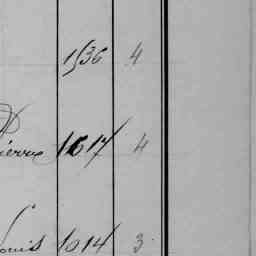 1536 4
Pierre 1617 4
Louis 1614 3